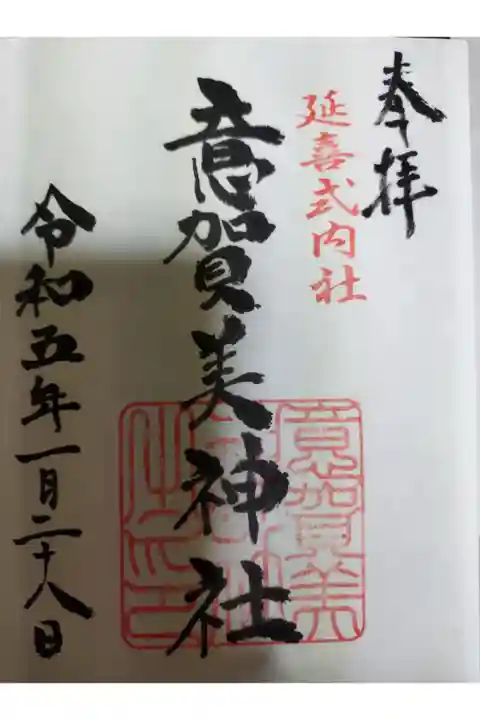 奉拝
延喜式内社
意賀美神社
意賀美
神社
之印
令和五年一月二十八日